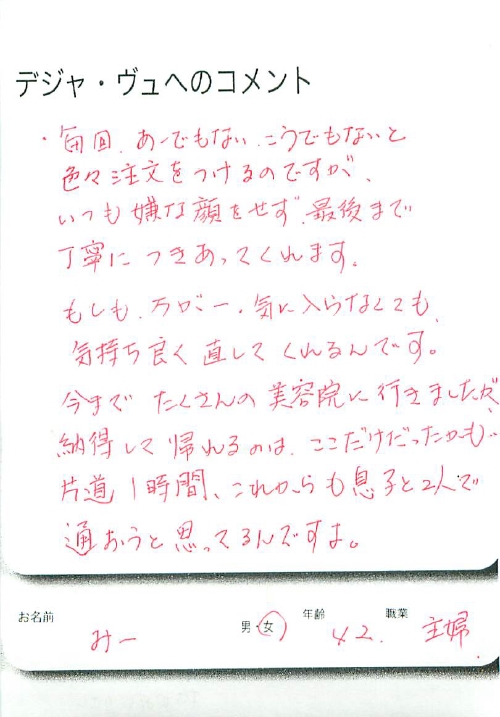 デジャ・ヴュへのコメント
・毎回、あーでもない、こうでもないと
色々注文をつけるのですが、
いつも嫌な顔をせず、最後まで
丁寧に つきあってくれます。
もしも、万が一、気に入らなくても、
気持ち良く 直してくれるんです。
今まで たくさんの 美容院に行きましたが、
納得して 帰れるのは、ここだけだったかも…
片道 1時間、これからも 息子と2人で
通おうと 思ってるんですよ。
お名前 みー 男・女 年齢 42. 職業 主婦.